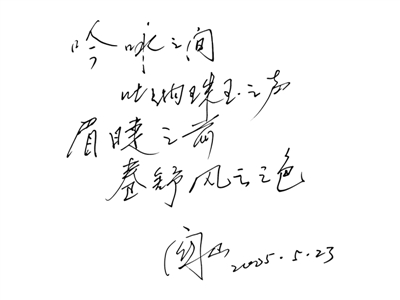 吟咏之间
吐纳珠玉之声
眉睫之前
卷舒风云之色
2005.5.23